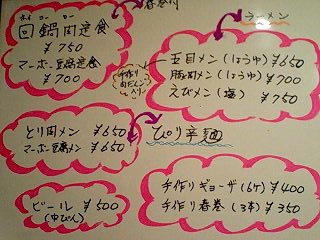 ホイ コー ロー
回鍋肉定食
¥750
マーボー豆腐定食
¥700
ラーメン
五目メン(しょうゆ) ¥650
豚肉メン(しょうゆ) ¥700
えびメン(塩) ¥750
手作り
肉だんご
入り
とり肉メン ¥650
マーボー豆腐メン ¥650
ぴり辛麺
ビール ¥500
(中びん)
手作りギョーザ(6ケ) ¥400
手作り春巻(3本) ¥350